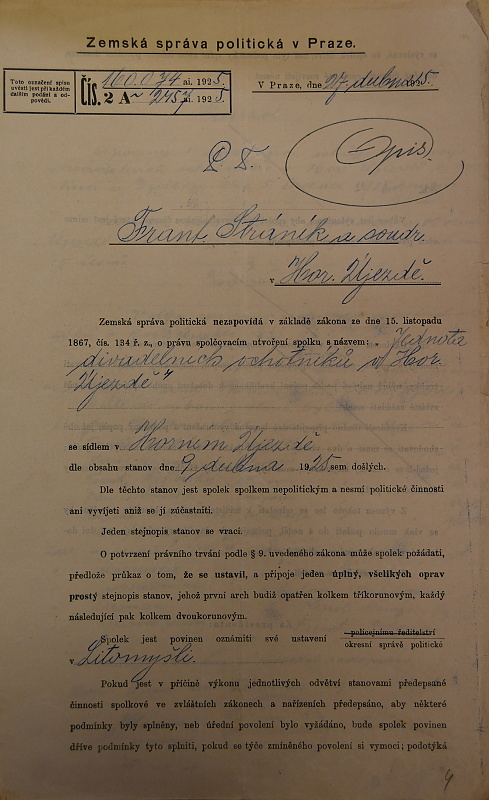 Zemská správa politická v Praze.
Toto označení spisu
uvésti jest při každém
dalším podání a od-
povědi.
Čís. 160.074 ai. 1925.
2 A 2457 ai. 1925.
V Praze, dne 27. dubna 1925.
P. T.
Opis.
Frant. Stráník a soudr.
v Hor. Újezdě.
Zemská správa politická nezapovídá v základě zákona ze dne 15. listopadu
1867, čís. 134 ř. z., o právu spolčovacím utvoření spolku s názvem: „Jednota
divadelních ochotníků v Hor.
Újezdě"
se sídlem v Horním Újezdě
dle obsahu stanov dne 9. dubna 1925 sem došlých.
Dle těchto stanov jest spolek spolkem nepolitickým a nesmí politické činnosti
ani vyvíjeti aniž se jí zúčastniti.
Jeden stejnopis stanov se vrací.
O potvrzení právního trvání podle § 9. uvedeného zákona může spolek požádati,
předlože průkaz o tom, že se ustavil, a připoje jeden úplný, všelikých oprav
prostý stejnopis stanov, jehož první arch budiž opatřen kolkem tříkorunovým, každý
následující pak kolkem dvoukorunovým.
Spolek jest povinen oznámiti své ustavení policejnímu ředitelství
okresní správě politické
v Litomyšli.
Pokud jest v příčině výkonu jednotlivých odvětví stanovami předepsané
činnosti spolkové ve zvláštních zákonech a nařízeních předepsáno, aby některé
podmínky byly splněny, neb úřední povolení bylo vyžádáno, bude spolek povinen
dříve podmínky tyto splniti, pokud se týče zmíněného povolení si vymoci; podotýká
4